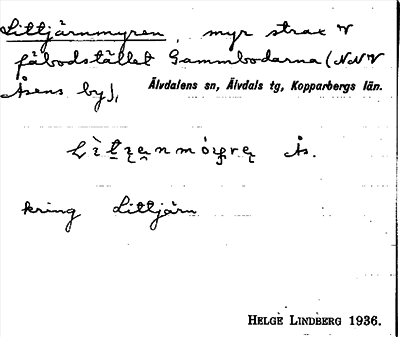 Littjärnmyren, myr strax V
fäbodstället Gammbodarna (NNV
Åsens by), Älvdalens sn, Älvdals tg, Kopparbergs län.
Ås.
kring Littjärn
HELGE LINDBERG 1936.